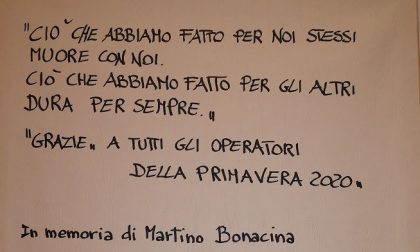 "CIÒ CHE ABBIAMO FATTO PER NOI STESSI
MUORE CON NOI.
CIÒ CHE ABBIAMO FATTO PER GLI ALTRI
DURA PER SEMPRE."
"GRAZIE" A TUTTI GLI OPERATORI
DELLA PRIMAVERA 2020"
In memoria di Martino Bonacina